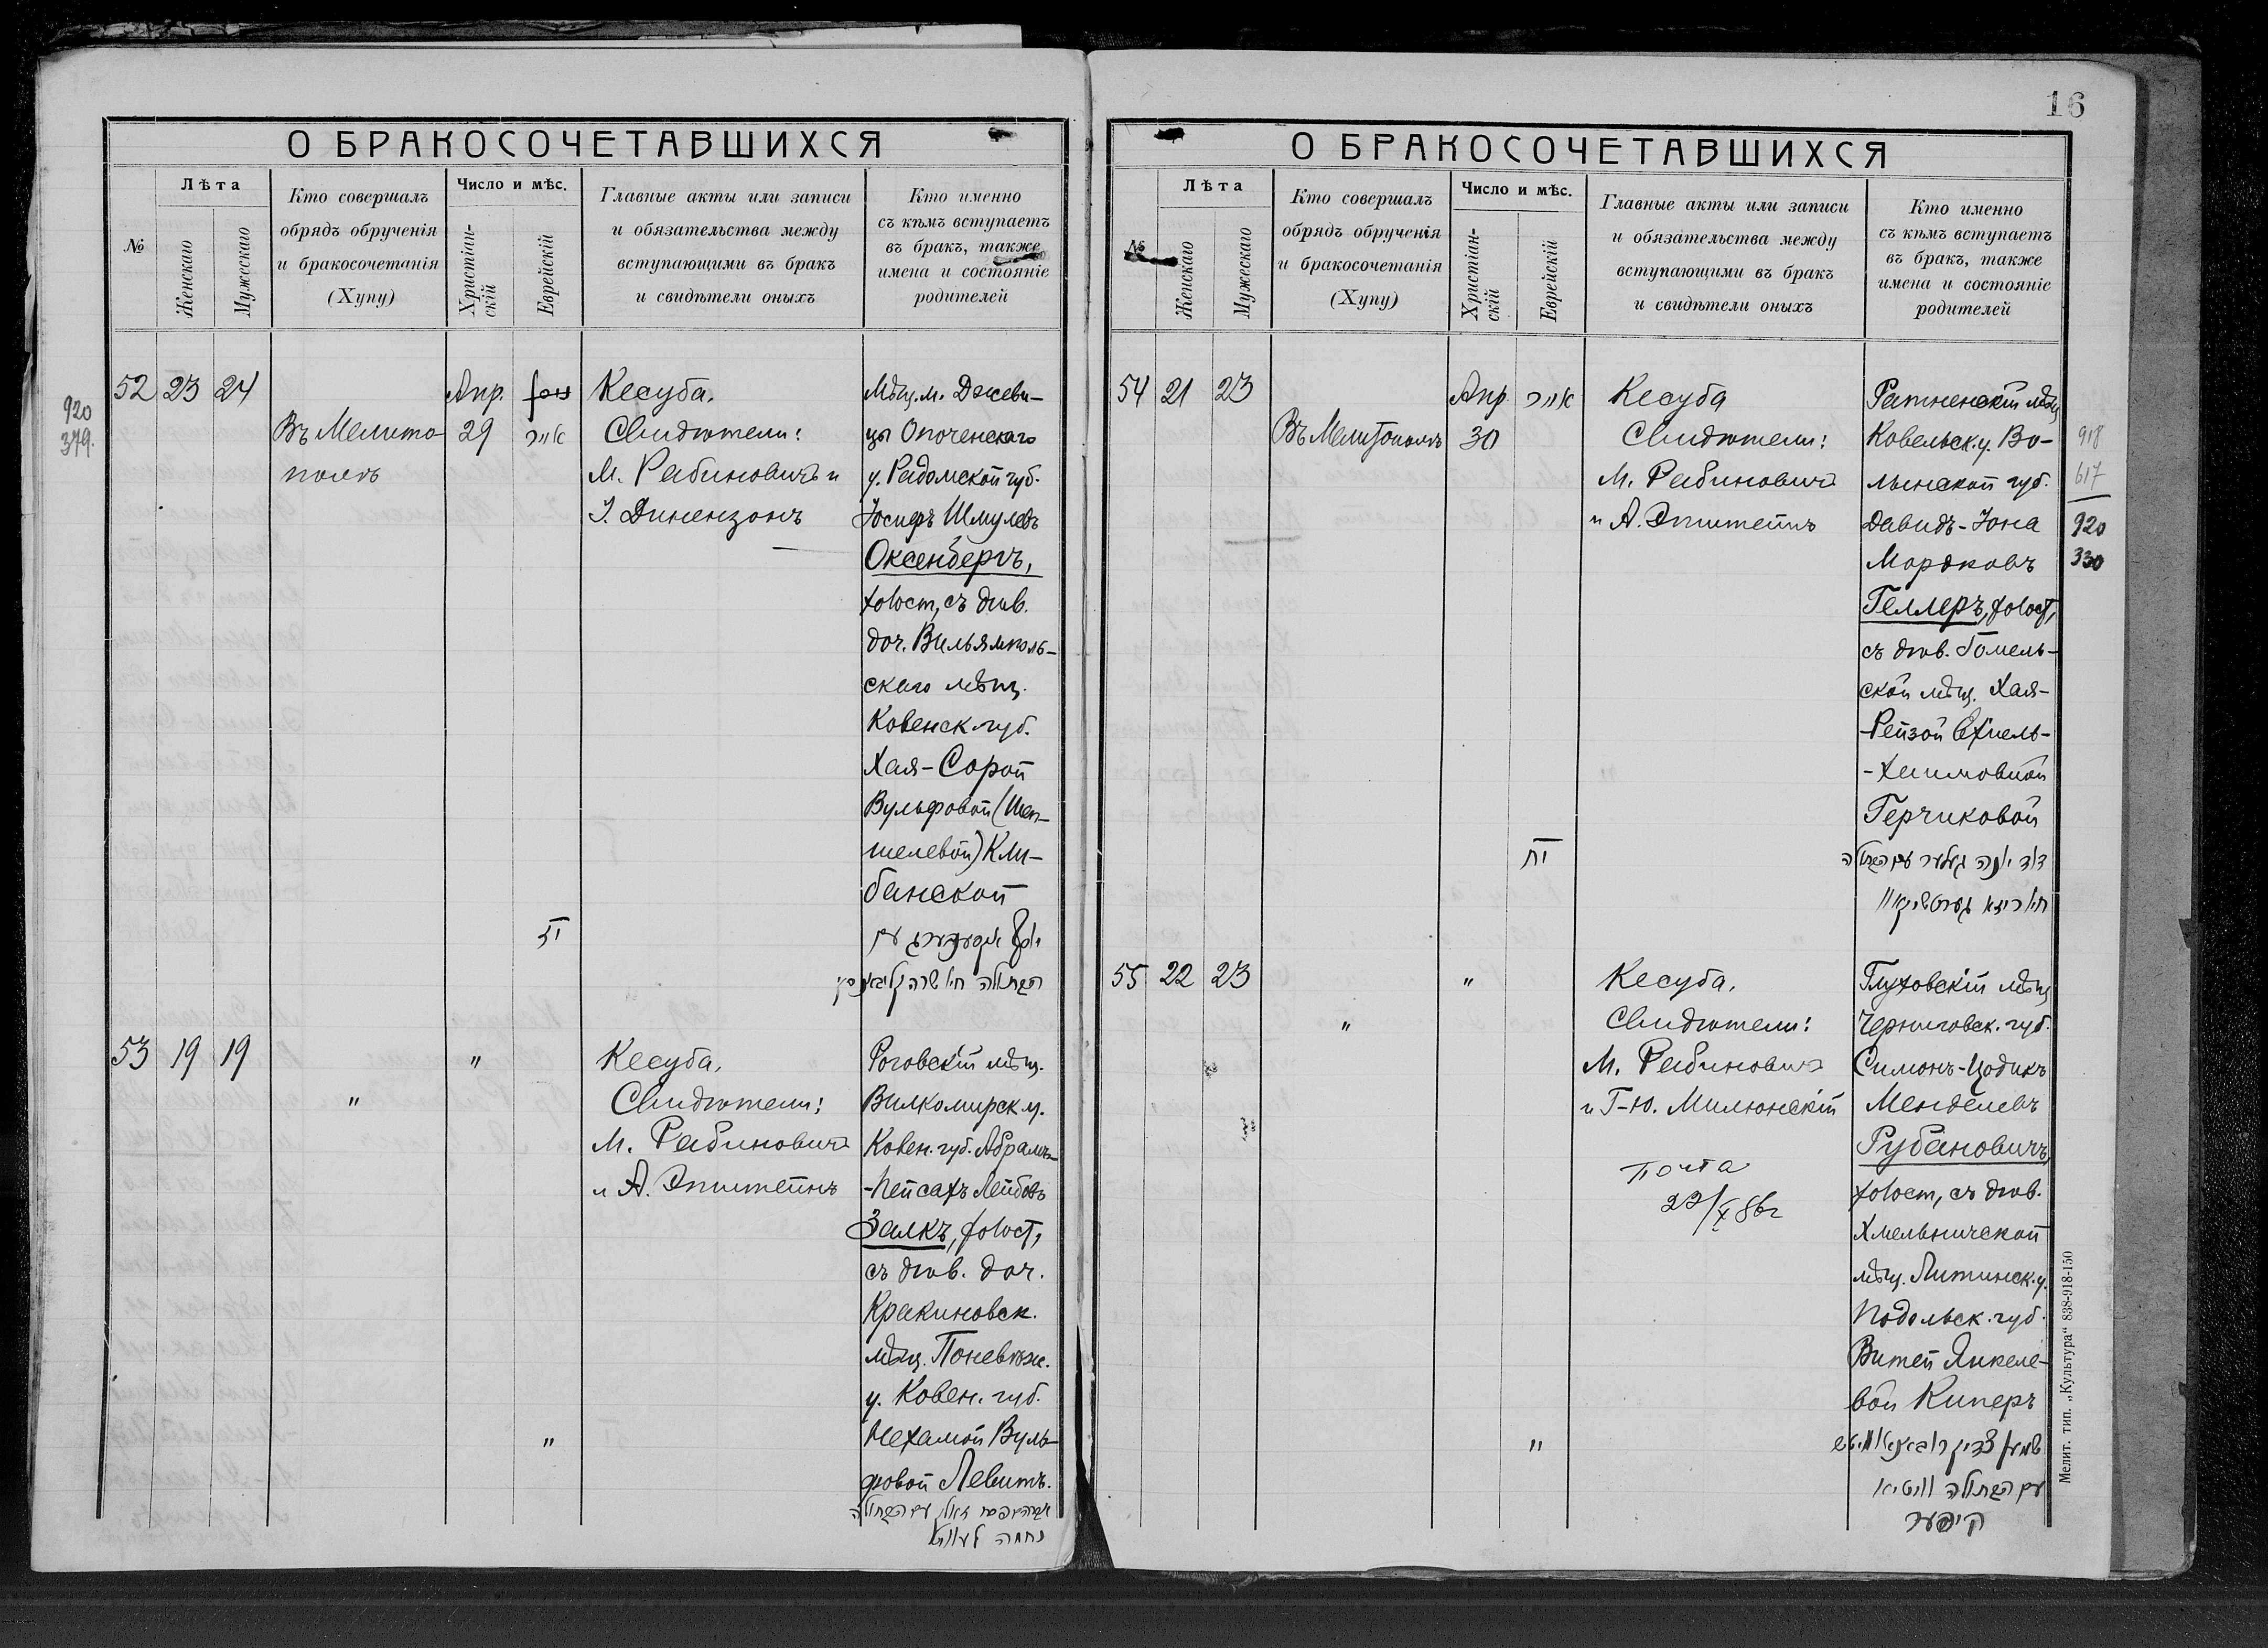 О БРАКОСОЧЕТАВШИХСЯ
№
Лѣта
Женскаго
Мужескаго
Кто совершалъ
обрядъ обрученія
и бракосочетанія
(Хупу)
Число и мѣс.
Христіан-
скій
Еврейскій
Главные акты или записи
и обязательства между
вступающими въ бракъ
и свидѣтели оныхъ
Кто именно
съ кѣмъ вступаетъ
въ бракъ, также
имена и состояніе
родителей
920
379.
52 23 24
Въ Мелито
полѣ
Апр.
29
אייר
יז
Кесуба.
Свидѣтели:
М. Рабиновичъ и
І. Динензонъ
Мѣщ. м. Джеви-
цы Опоченскаго
у. Радомской губ.
Іосифъ Шмулевъ
Оксенбергъ,
холост, съ дѣв.
доч. Вильямполь-
скаго мѣщ.
Ковенск. губ.
Хая-Сорой
Вульфовой (Шеп-
шелевой) Кли-
банской
הבתולה חי' שרה
53 19 19
"
"
"
Кесуба.
Свидѣтели:
М. Рабиновичъ
и А. Эпштейнъ
Роговскій мѣщ.
Вилкомирск. у.
Ковен. губ. Абрамъ-
-Пейсахъ Лейбовъ
Залкъ, холост,
съ дѣв. доч.
Кракиновск.
мѣщ. Поневѣж.
у. Ковен. губ.
Нехамой Вуль-
фовой Левитъ.
אברהם פסח זאלק עם הבתולה
נחמה לעוויט
16
О БРАКОСОЧЕТАВШИХСЯ
№
Лѣта
Женскаго
Мужескаго
Кто совершалъ
обрядъ обрученія
и бракосочетанія
(Хупу)
Число и мѣс.
Христіан-
скій
Еврейскій
Главные акты или записи
и обязательства между
вступающими въ бракъ
и свидѣтели оныхъ
Кто именно
съ кѣмъ вступаетъ
въ бракъ, также
имена и состояніе
родителей
54 21 23
Въ Мелитополѣ
Апр
30
אייר
יח
Кесуба
Свидѣтели:
М. Рабиновичъ
и А. Эпштейнъ
Ратненскій мѣщ
Ковельск. у. Во-
лынской губ.
Давидъ-Іона
Мордковъ
Геллеръ, холост,
съ дѣв. Гомель-
ской мѣщ. Хая-
-Рейзой Ехіель-
-Хаимовной
Герчиковой
דוד יונה געלער עם הבתולה
חי' רייזא
918
617
920
330
55 22 23
"
"
"
Кесуба.
Свидѣтели:
М. Рабиновичъ
и Г-Ю. Милюнскій
почта
22/X 86г
Глуховскій мѣщ
Черниговск. губ.
Симонъ-Цодикъ
Менделевъ
Рубановичъ,
холост, съ дѣв.
Хмельничской
мѣщ. Литинск. у.
Подольск. губ.
Витей Янкеле-
вой Киперъ
שמעון צדיק
עם הבתולה וויטיא
קיפער
Мелит. тип. „Культура“ 838-918-150